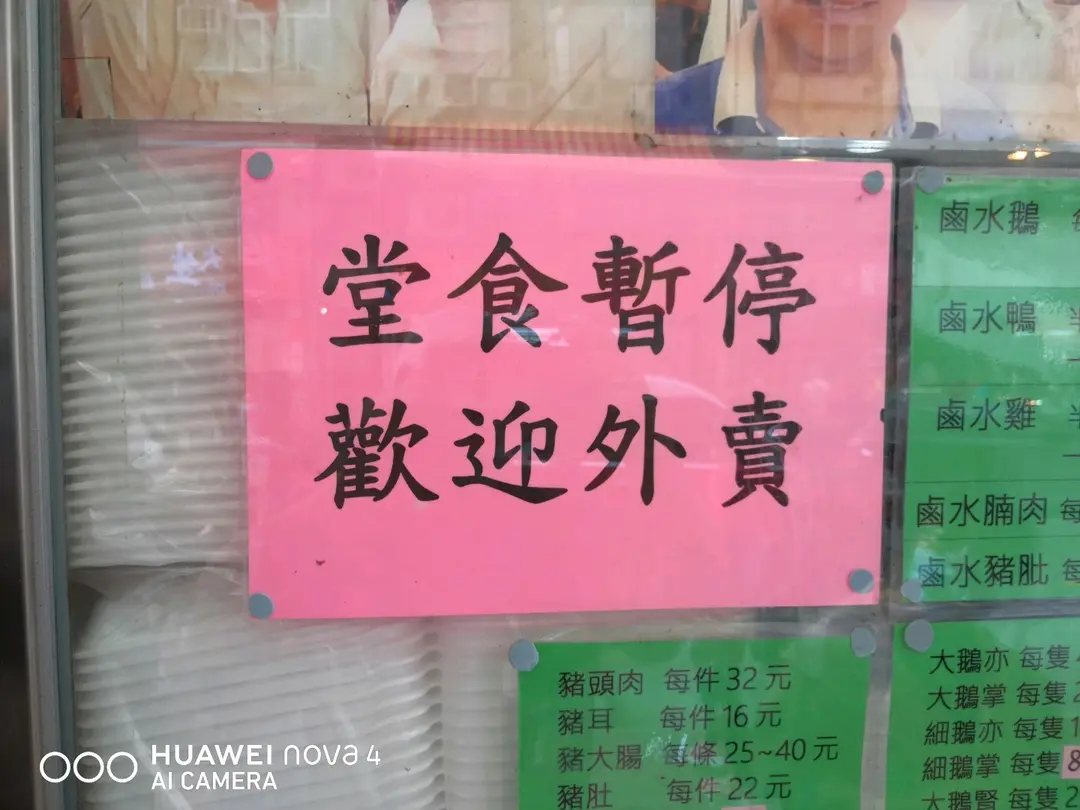 堂食暫停
歡迎外賣
鹵水鵝
鹵水鴨
鹵水雞
鹵水腩肉 每
鹵水豬肚 每
豬頭肉 每件 32 元
豬耳 每件 16 元
豬大腸 每條 25~40 元
豬肚 每件 22 元
大鵝亦 每隻
大鵝掌 每隻
細鵝亦 每隻
細鵝掌 每隻
大鵝腎 每隻
HUAWEI nova 4
AI CAMERA